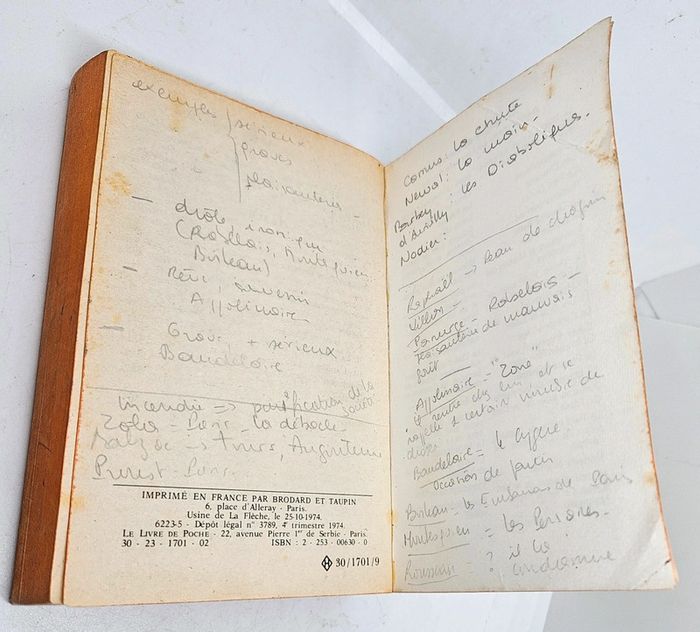 exemples / sérieux
graves
plaisanterie -
- drôle, ironique
(Rabelais, Montesquieu
Boileau)
- Rêve, souvenir
Appolinaire
- Grave, + sérieux
Baudelaire
Incendie => purification de la
Zola - Paris - La débacle
Balzac -> Tours, Angoulême
Proust - Paris
IMPRIMÉ EN FRANCE PAR BRODARD ET TAUPIN
6, place d'Alleray - Paris.
Usine de La Flèche, le 25-10-1974.
6223-5 - Dépôt légal n° 3789, 4e trimestre 1974.
LE LIVRE DE POCHE - 22, avenue Pierre 1er de Serbie - Paris.
30 - 23 - 1701 - 02 ISBN : 2 - 253 - 00630 - 0
30/1701/9
Camus: La chute
Nerval: La main.
Barbey
d'Aurevilly: Les Diaboliques.
Nodier:
Raphaël -> Peau de chagrin
Villon -
Panurge - Rabelais -
plaisanterie de mauvais
goût
Appolinaire - "Zone"
il rentre chez lui et se
rappelle d'certain nombre de
choses
Baudelaire = le cygne
occasion de
Boileau = les Embarras de Paris
Montesquieu = les Persanes -
Rousseau = ? il la
condamne